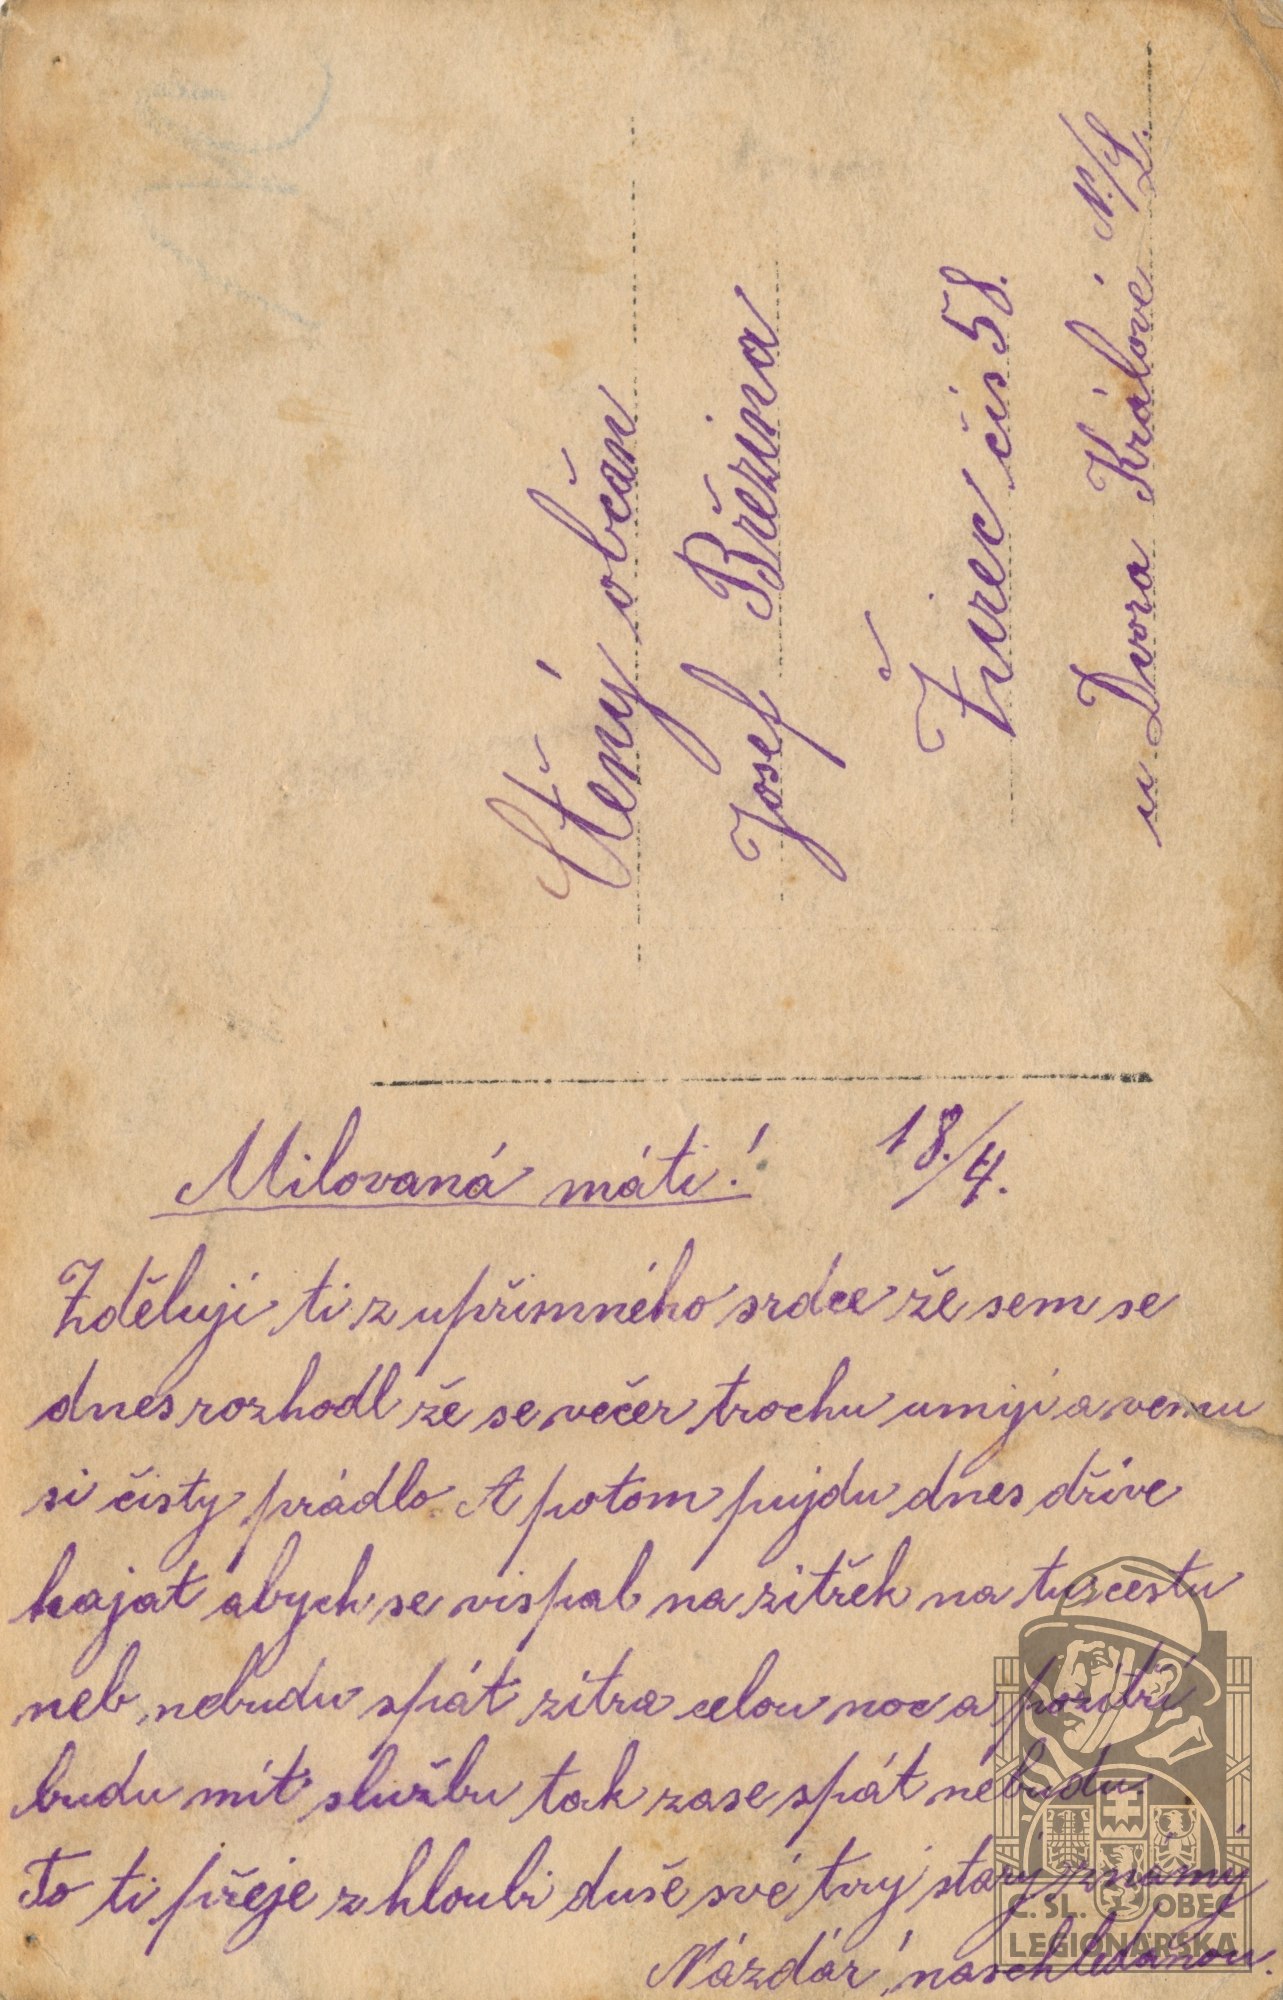 Ctěný občan
Josef Březina
Žirec čís 58.
u Dvora Králové N./L.
Milovaná máti! 18./4.
Zděluji ti z upřimného srdce že sem se
dnes rozhodl že se večer trochu umiji a vemu
si čisty prádlo A potom pujdu dnes dřive
hajat abych se vispal na zitřek na tu cestu
neb nebudu spát zitra celou noc a pozitři
budu mít službu tak zase spát nebudu.
To ti přeje z hloubi duše své tvý starý známý
Názdár, naschledanou.
Č. SL. OBEC
LEGIONÁŘSKÁ